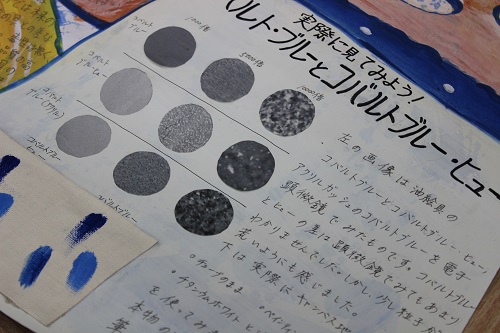 実際に見てみよう!
バルト・ブルーとコバルトブルー・ヒュー
コバルト
ブルー
1000倍
5000倍
10000倍
コバルトブルー
ヒュー
コバルト
ブルー(アクリル)
コバルトブルー
左の画像は油絵具の
コバルトブルーとコバルトブルー・ヒュー、
アクリルガッシュのコバルトブルーを電子
顕微鏡でみたものです。コバルトブルー
とヒューの差は顕微鏡でみてもあまり
わかりませんでした。しかし、少し粒子が
荒いようにも感じました。
下は実際にキャンバスに
・チューブのまま
・チタニウムホワイトと
・ペイン
を使ってみ
本物の
筆